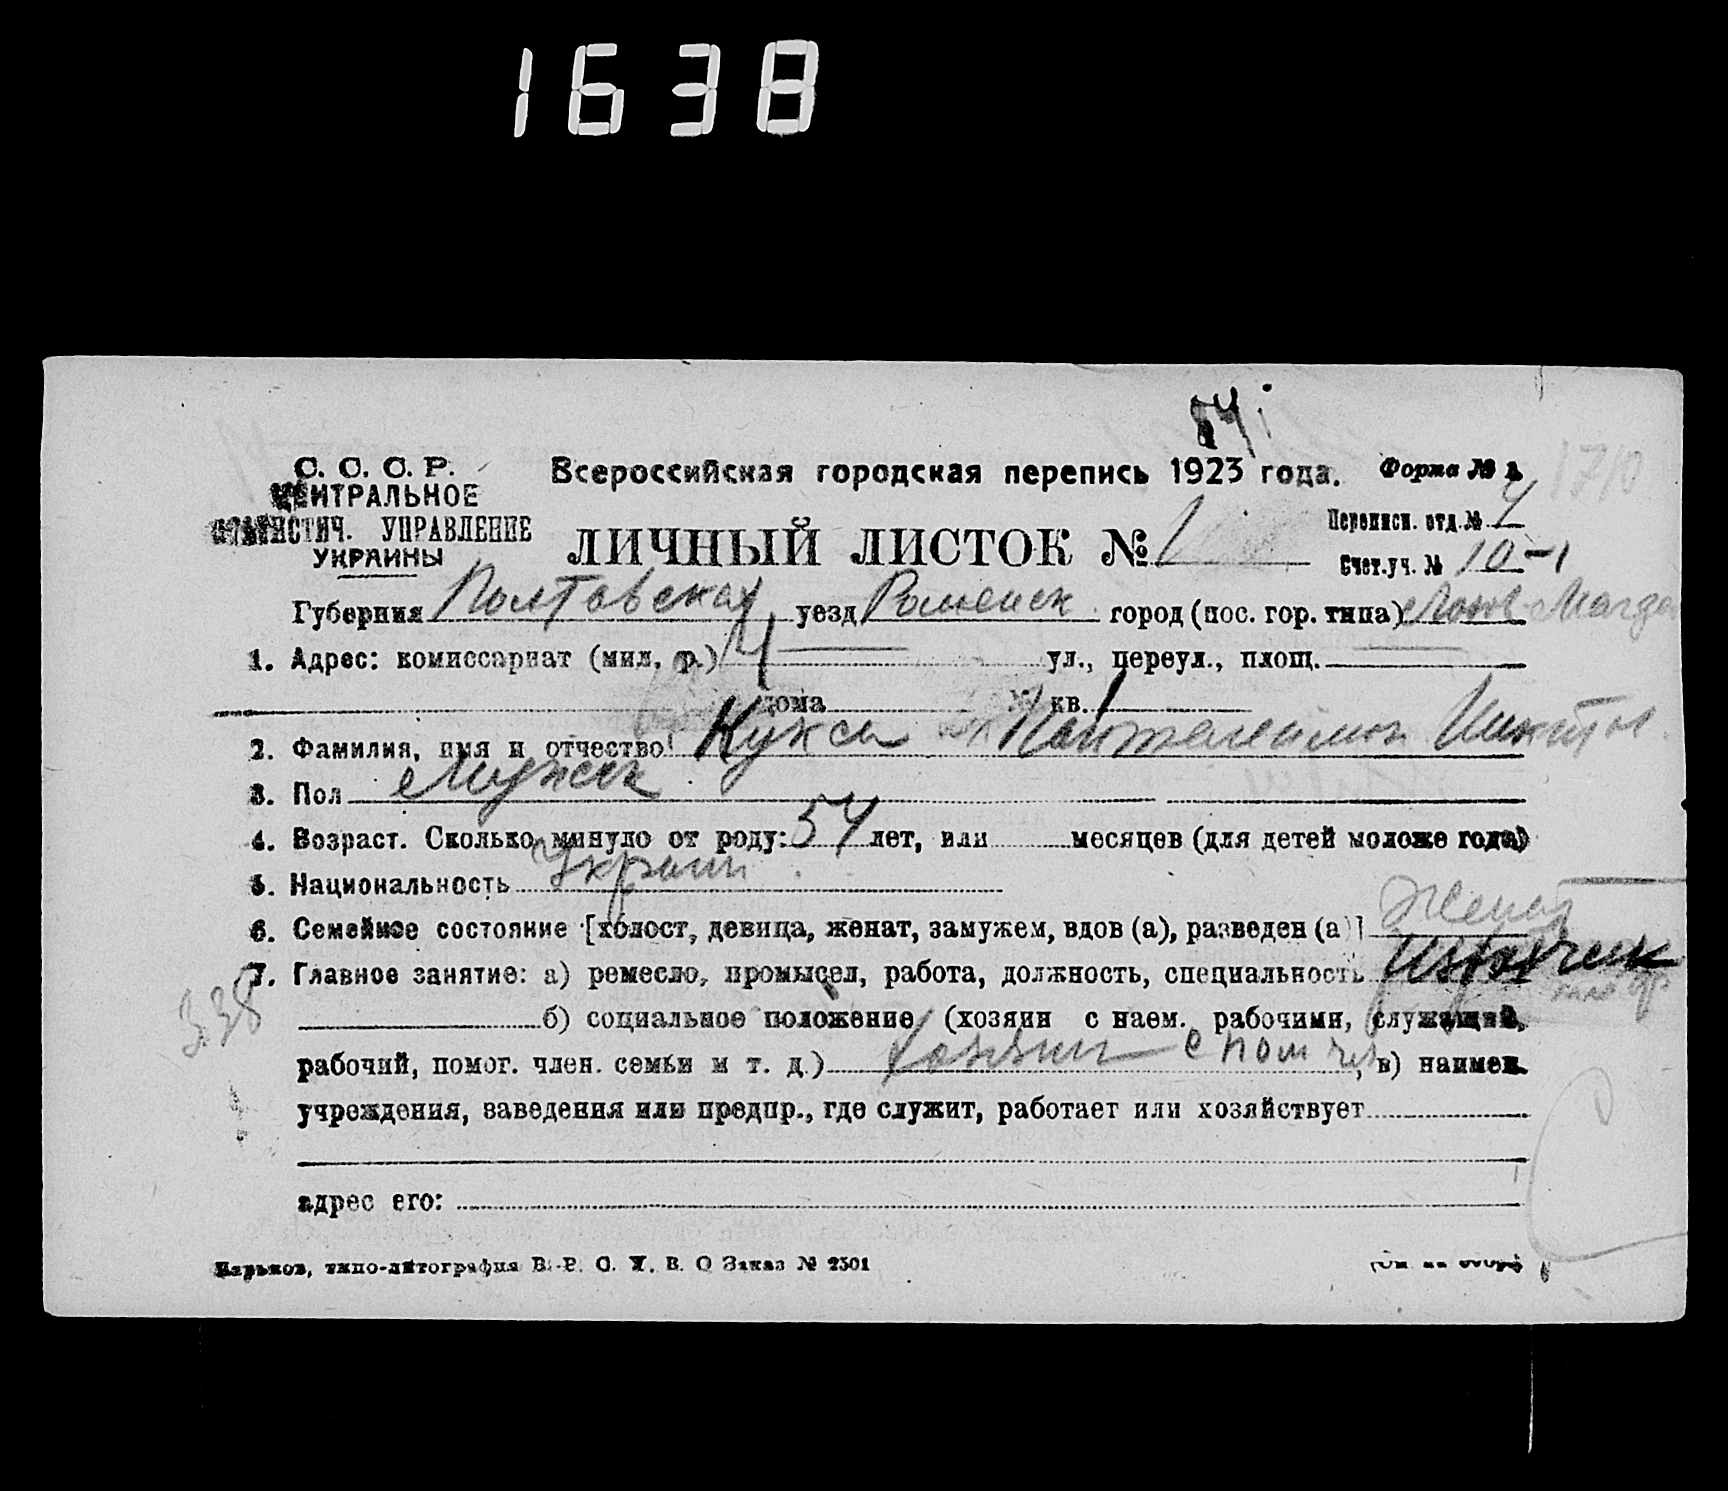 1638
54
С. С. С. Р.
ЦЕНТРАЛЬНОЕ
СТАТИСТИЧ. УПРАВЛЕНИЕ
УКРАИНЫ
Всероссийская городская перепись 1923 года. Форма № 1710
ЛИЧНЫЙ ЛИСТОК № 1
Переписн. отд. № 4
Счет. уч. № 10-1
Губерния Полтавская уезд Роменск город (пос. гор. типа)
1. Адрес: комиссариат (мил. р.) 4 ул., переул., площ.
дома № кв. 1
2. Фамилия, имя и отчество: Кукса Пантелеимон Никиты
3. Пол Мужск
4. Возраст. Сколько минуло от роду: 54 лет, или месяцев (для детей моложе года)
5. Национальность Украин
6. Семейное состояние [холост, девица, женат, замужем, вдов (а), разведен (а)] Женат
7. Главное занятие: а) ремесло, промысел, работа, должность, специальность
338
б) социальное положение (хозяин с наем. рабочими, служащий,
рабочий, помог. член. семьи и т. д.) хозяин с пом чл, в) наимен.
учреждения, заведения или предпр., где служит, работает или хозяйствует
адрес его:
Харьков, типо-литография В. Р. С. У. В. О Заказ № 2501